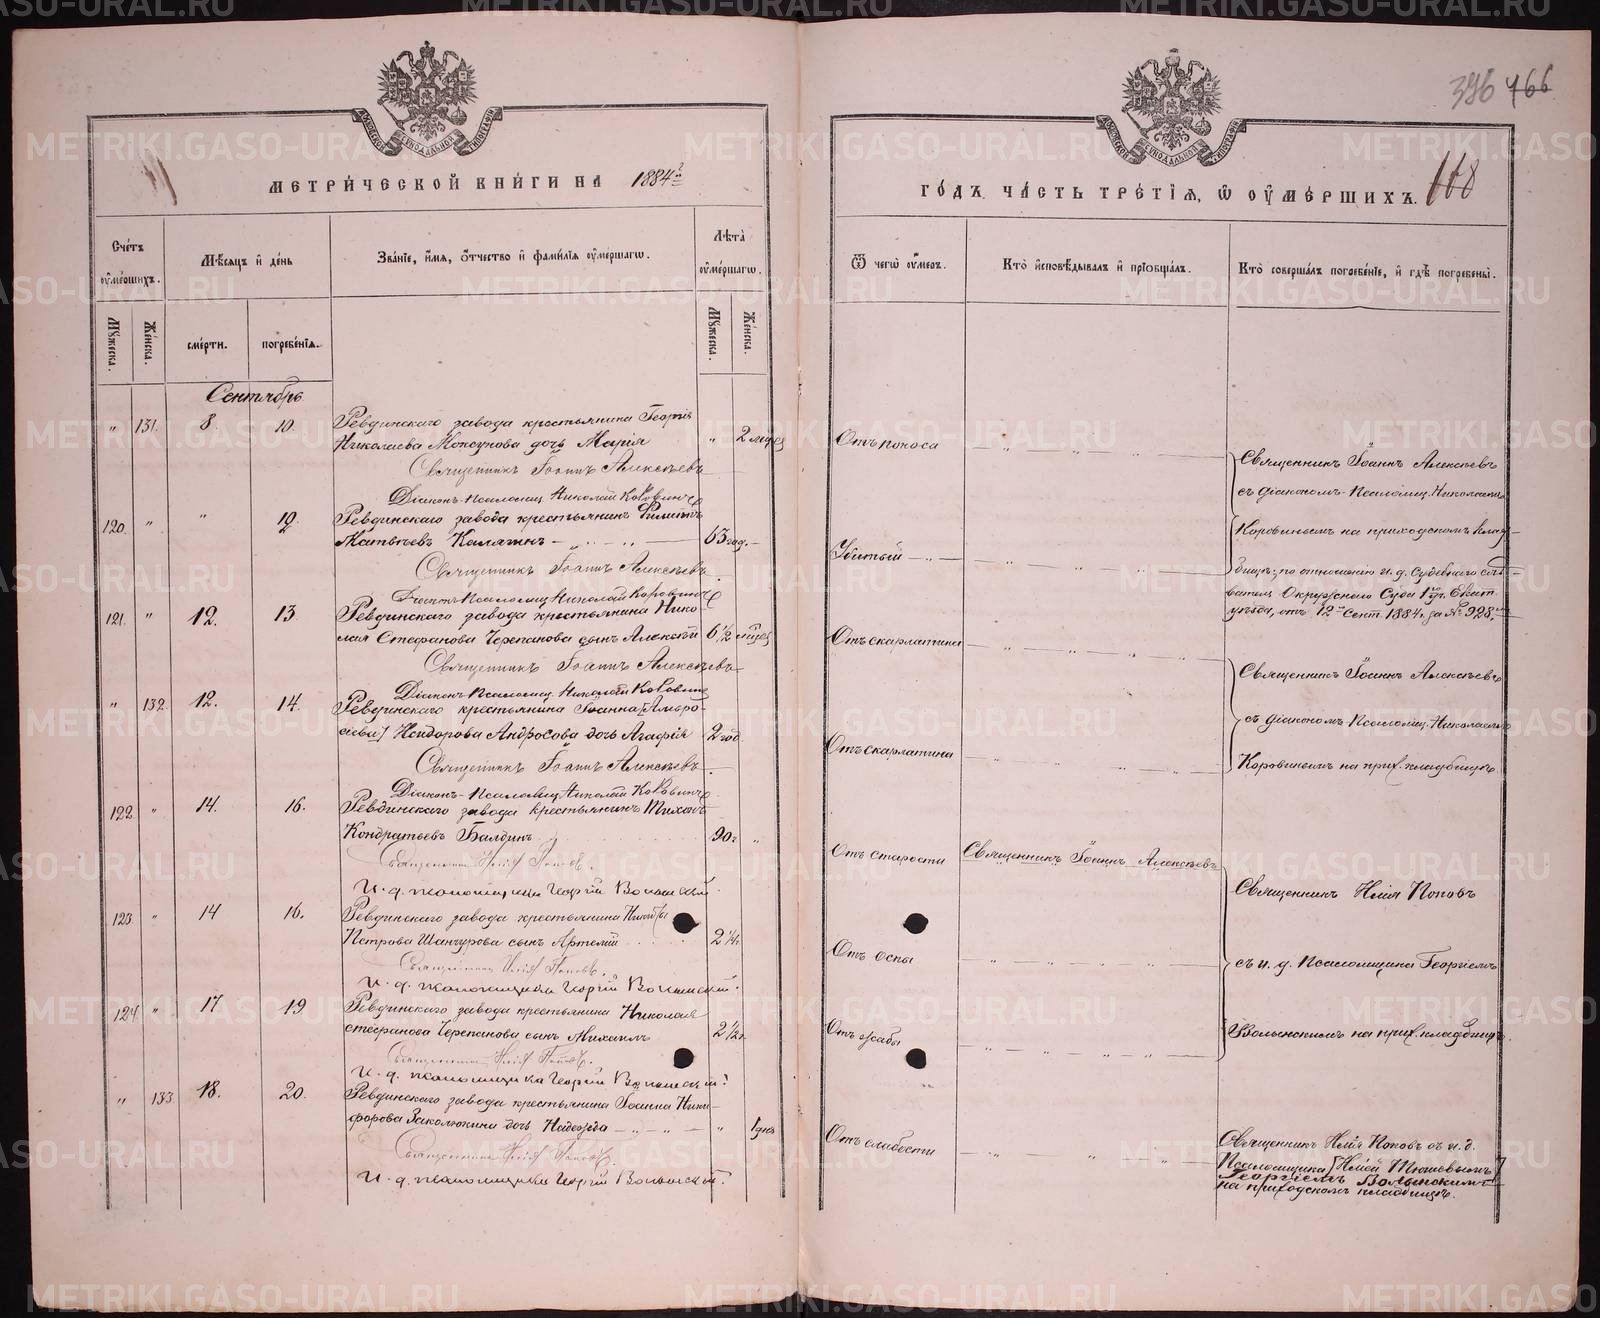 396 166
МЕТРИЧЕСКОЙ КНИГИ НА 1884й
ГОДЪ, ЧАСТЬ ТРЕТІЯ, Ѿ ОУМЕРШИХЪ. 168
Счетъ оумершихъ.
Мѣсяцъ и день
Званіе, имя, отчество и фамилія оумершагѡ.
Лѣта оумершагѡ.
Ѿ чегѡ оумеръ.
Кто исповѣдывалъ и пріобщалъ.
Кто совершалъ погребеніе, и гдѣ погребены.
Мужеска. Женска. смерти. погребенія. Мужеска. Женска.
Сентябрь
„ 131. 8. 10. Ревдинскаго завода крестьянина Георгія
Николаева Мокеунова дочь Марія „ 2 Отъ поноса
Священникъ Іоаннъ Алексѣевъ
Діаконъ-Псаломщ. Николай Коровинъ
120. „ „ 12. Ревдинскаго завода крестьянинъ Филиппъ
Матвѣевъ Калягинъ 63 год. Убитый
Священникъ Іоаннъ Алексѣевъ
Діаконъ-Псаломщ. Николай Коровинъ
Священникъ Іоаннъ Алексѣевъ
съ діакономъ-Псаломщ. Николаемъ
Коровинымъ на приходскомъ клад-
бищѣ; по отношенію и. д. Судебнаго слѣдо-
вателя Окружнаго Суда 1 уч. Екат.
уѣзда, отъ 12 Сент. 1884 г. за № 928.
121. „ 12. 13. Ревдинскаго завода крестьянина Нико-
лая Стефанова Черепанова сынъ Алексѣй 6 1/2 мѣсяц Отъ скарлатина
Священникъ Іоаннъ Алексѣевъ
Діаконъ-Псаломщ. Николай Коровинъ
„ 132. 12. 14. Ревдинскаго крестьянина Іоанна [Амвро-
сіева] Исидорова Андросова дочь Агафія 2 год Отъ скарлатина
Священникъ Іоаннъ Алексѣевъ
Діаконъ-Псаломщ. Николай Коровинъ
Священникъ Іоаннъ Алексѣевъ
съ діакономъ-Псаломщ. Николаемъ
Коровинымъ на прих. кладбищѣ.
122. „ 14. 16. Ревдинскаго завода крестьянинъ Тихонъ
Кондратьевъ Балдинъ 90 г „ Отъ старости Священникъ Іоаннъ Алексѣевъ
Священникъ Илія Поповъ.
И. д. псаломщика Георгій Волынскій.
123. „ 14 16. Ревдинскаго завода крестьянина Никиты
Петрова Шангурова сынъ Артемій 2 1/4 Отъ оспы
Священникъ Илія Поповъ.
И. д. псаломщика Георгій Волынскій.
124 „ 17 19 Ревдинскаго завода крестьянина Николая
Стефанова Черепанова сынъ Михаилъ 2 1/2 г. Отъ жабы
Священникъ Илія Поповъ.
И. д. псаломщика Георгій Волынскій.
Священникъ Илія Поповъ
съ и. д. Псаломщика Георгіемъ
Волынскимъ на прих. кладбищѣ.
„ 133. 18. 20. Ревдинскаго завода крестьянина Іоанна Ники-
форова Заколюкина дочь Надежда „ 1 дня Отъ слабости
Священникъ Илія Поповъ.
И. д. псаломщика Георгій Волынскій.
Священникъ Илія Поповъ съ и. д.
Псаломщика [Иліей Тюшевымъ]
Георгіемъ Волынскимъ
на приходскомъ кладбищѣ.
METRIKI.GASO-URAL.RU